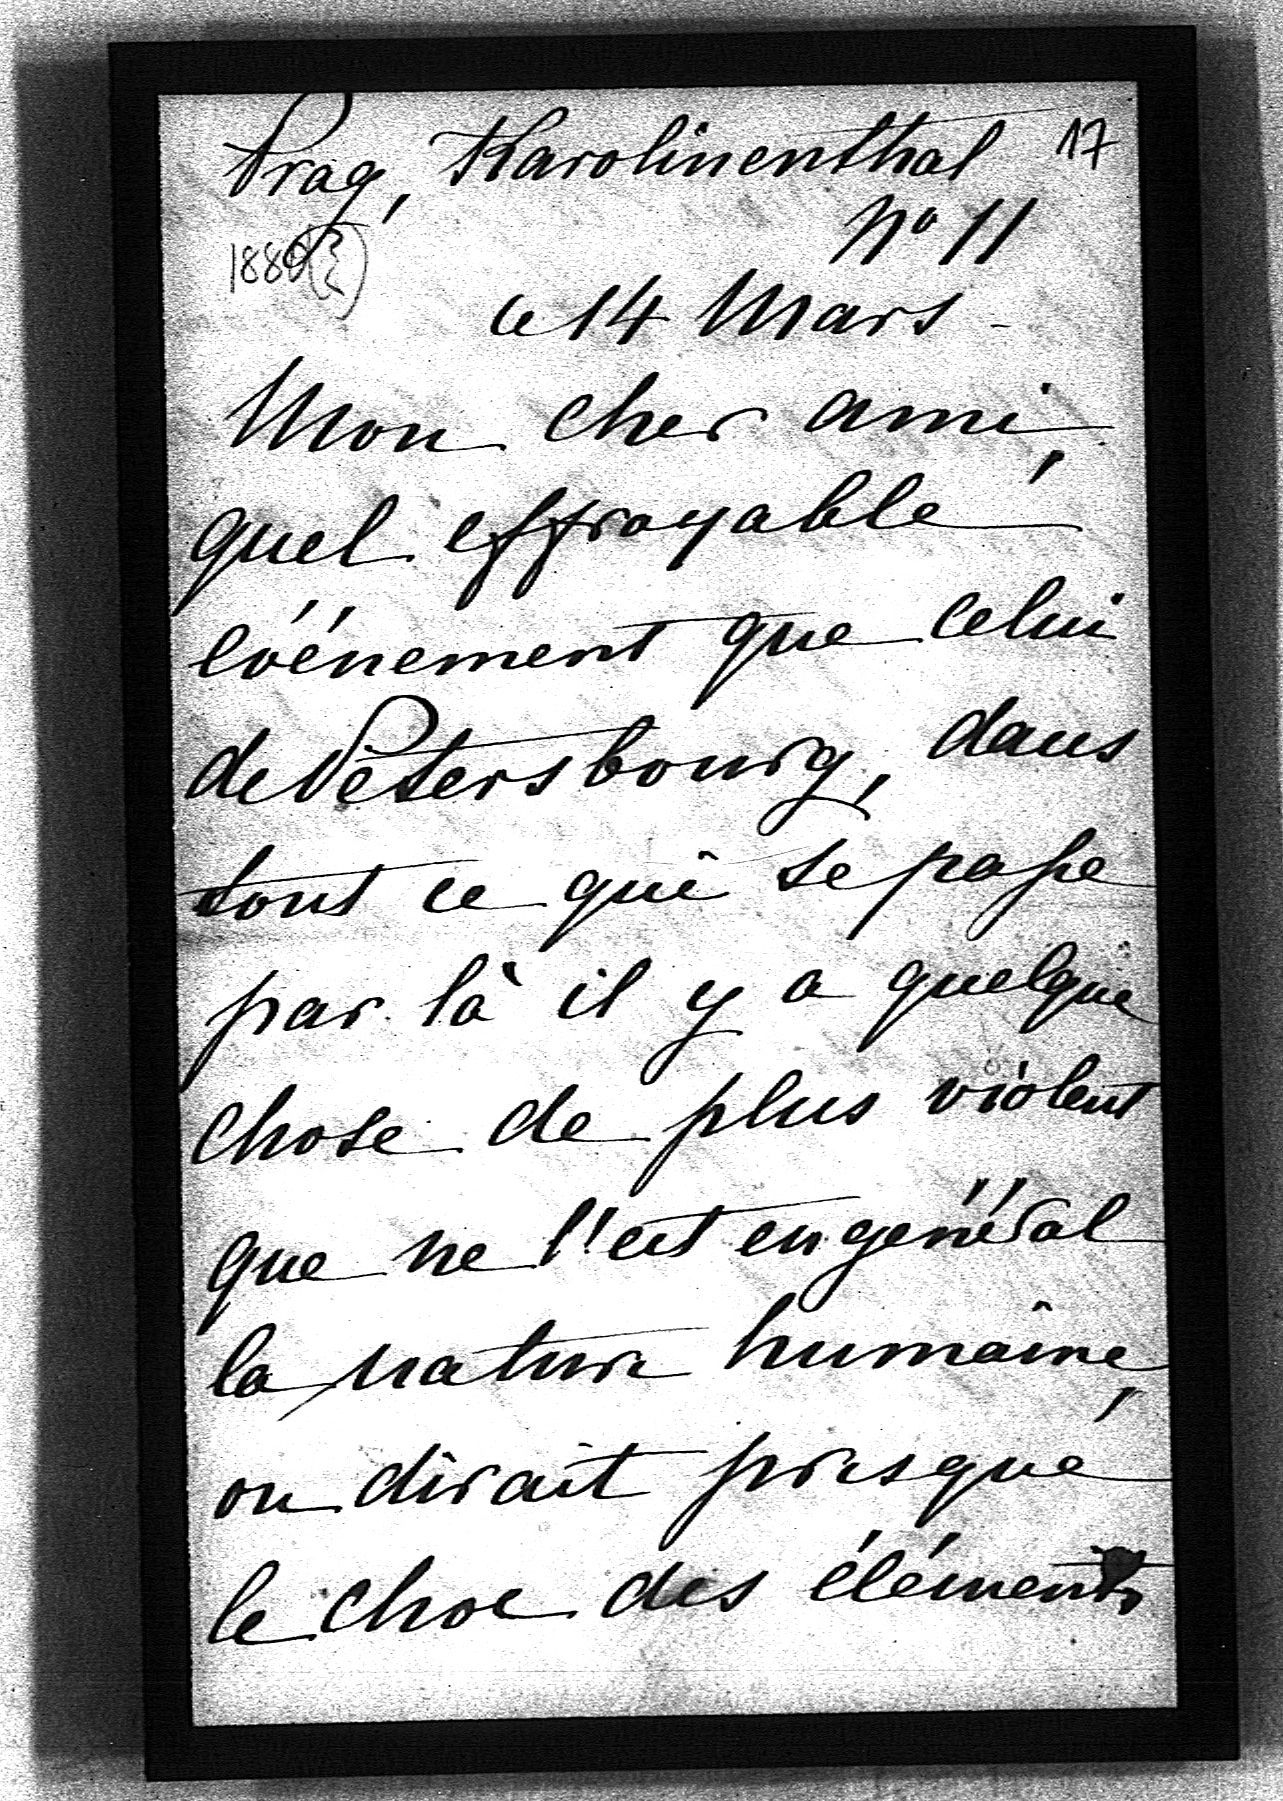 Prag, Karolinenthal 17
No 11
1880(?)
ce 14 Mars -
Mon cher ami,
quel effroyable
événement que celui
de Pétersbourg, dans
tout ce qui se passe
par là il y a quelque
chose de plus violent
que ne l'est en général
la nature humaine,
on dirait presque
le choc des éléments